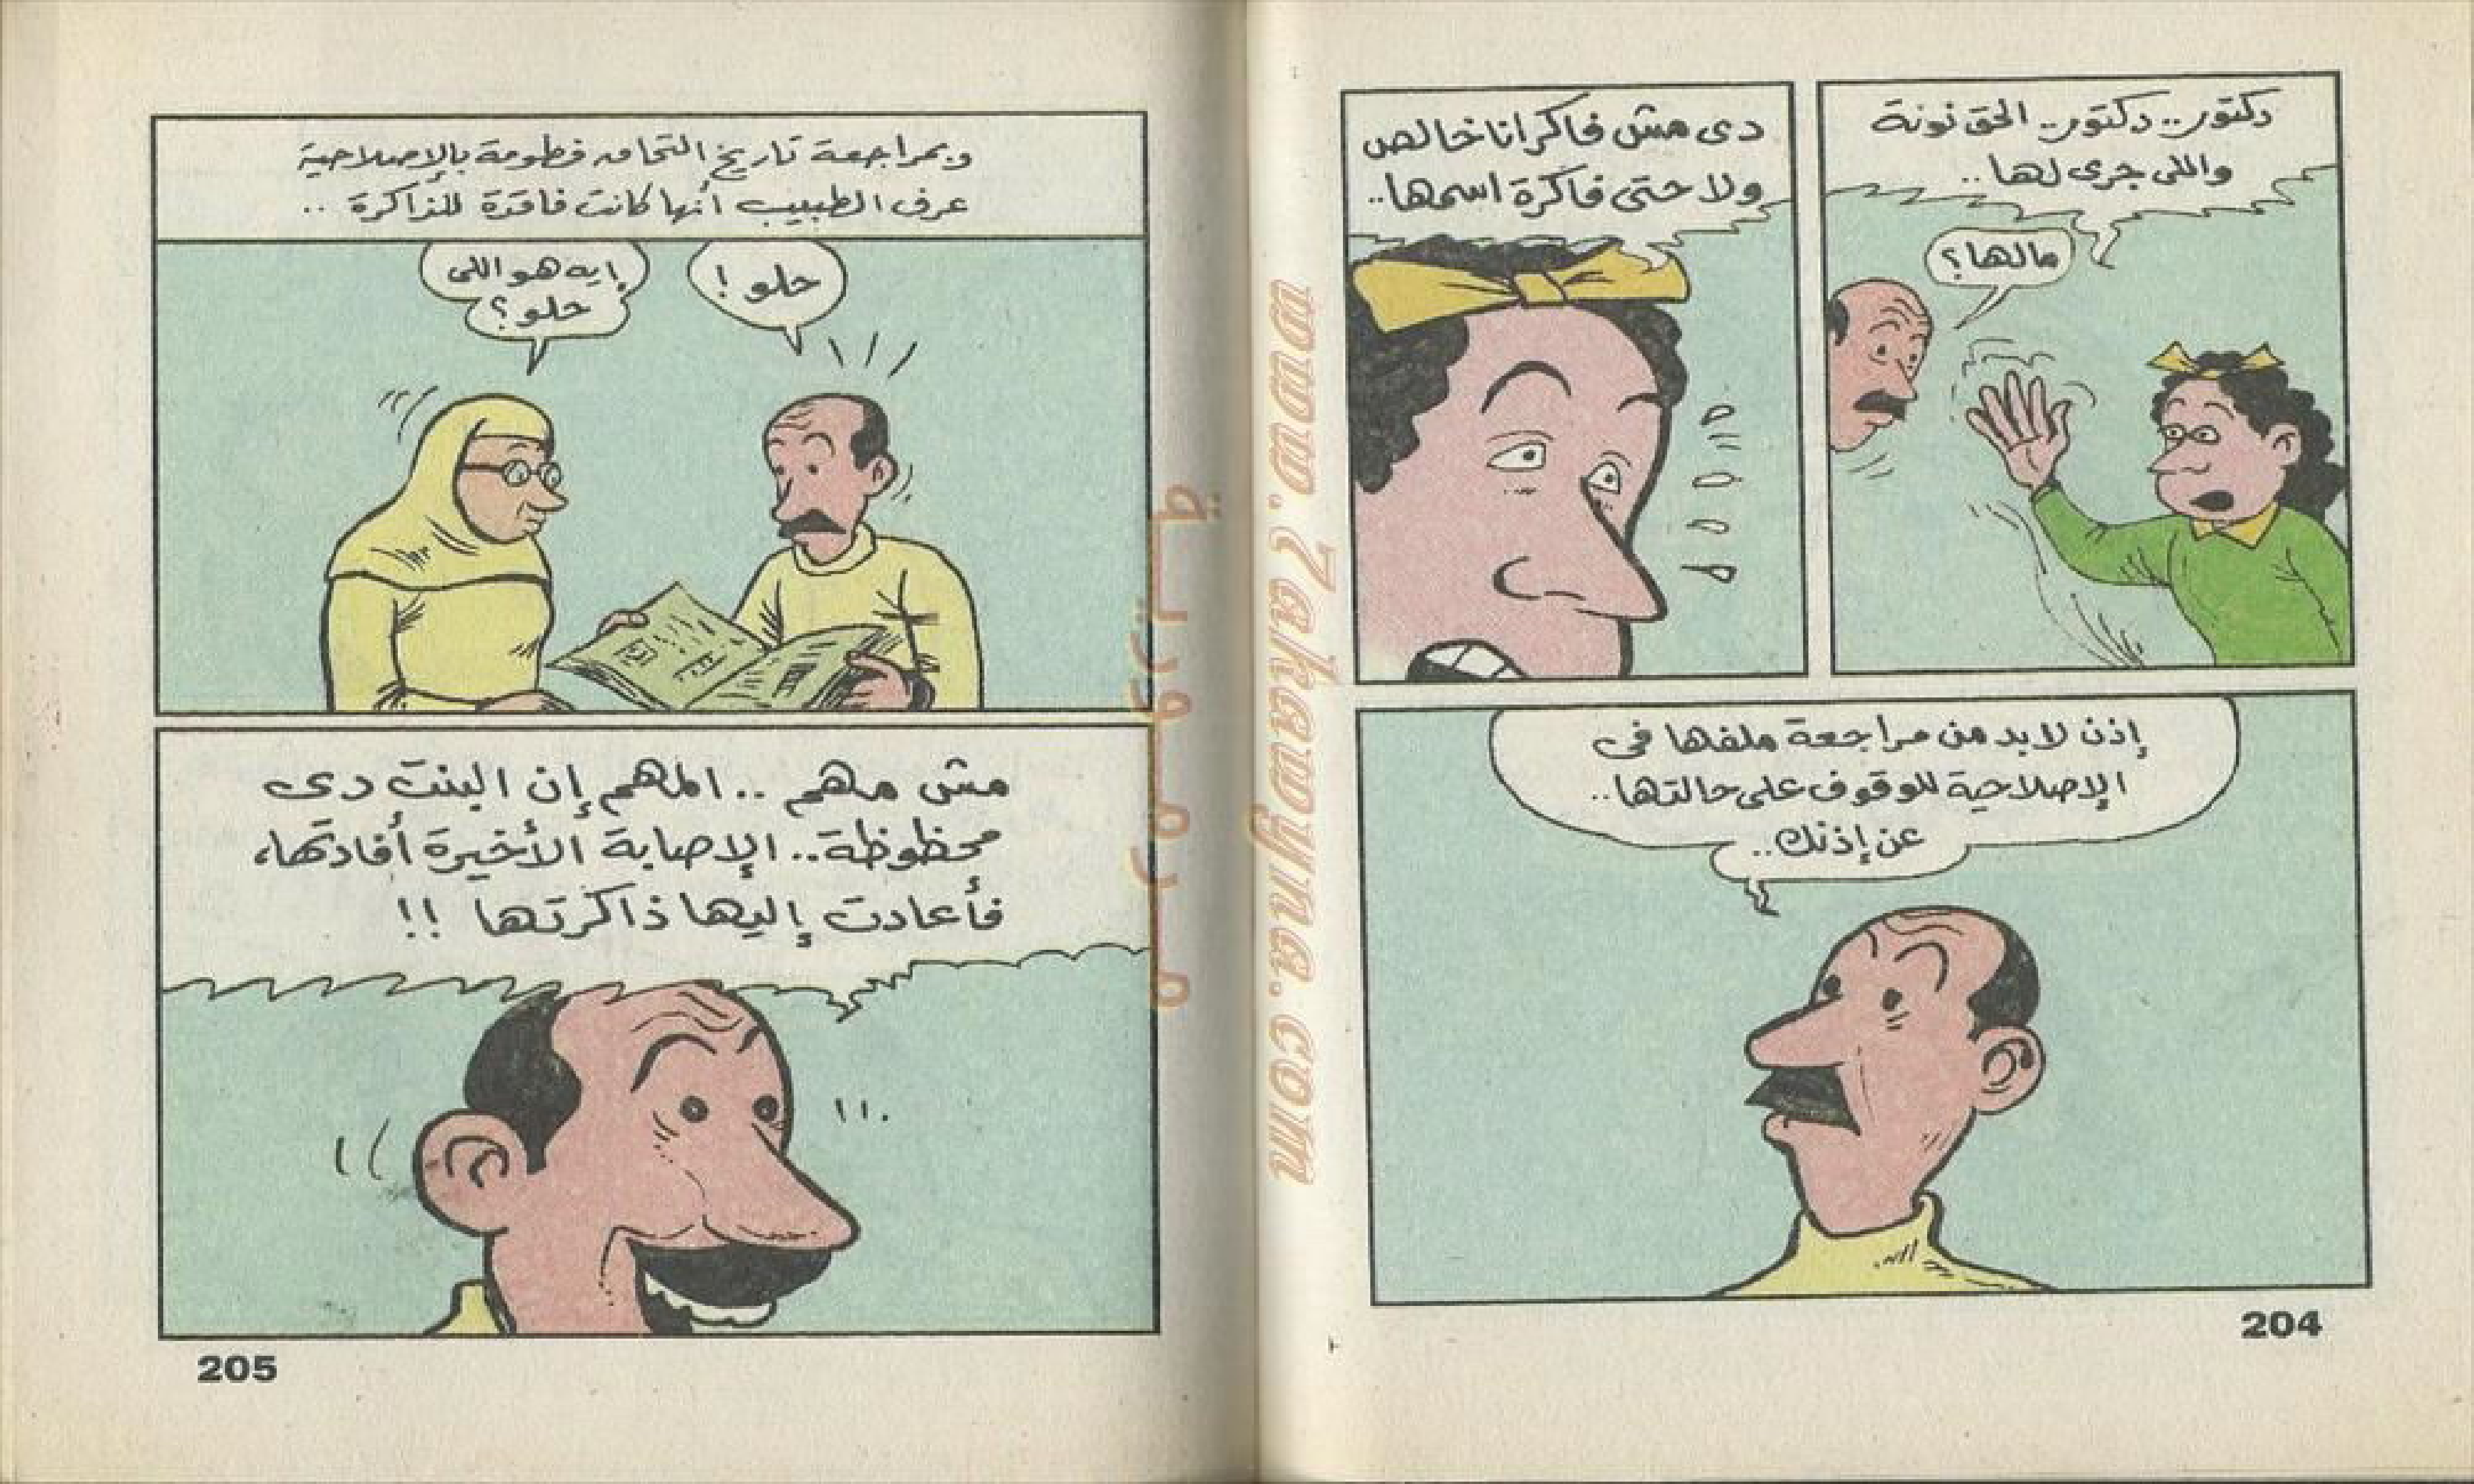 دكتور.. دكتور.. الحق نونة
واللى جرى لها..
مالها؟
دى مش فاكرانا خالص
ولا حتى فاكرة اسمها..
إذن لابد من مراجعة ملفها فى
الإصلاحية للوقوف على حالتها..
عن إذنك..
204
وبمراجعة تاريخ التحاق فطومة بالإصلاحية
عرف الطبيب أنها كانت فاقدة للذاكرة ..
حلو !
إيه هو اللى
حلو؟
مش مهم .. المهم إن البنت دى
محظوظة.. الإصابة الأخيرة أفادتها،
فأعادت إليها ذاكرتها !!
205
www.7akawyna.com